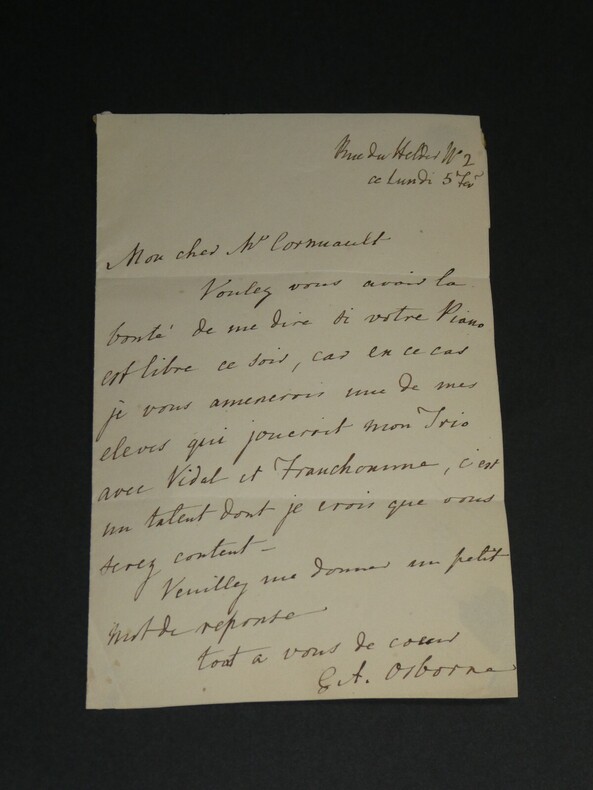 Rue du Helder No 2
ce Lundi 5 Fevr
Mon cher Mr Cornuault
Voulez vous avoir la
bonté de me dire si votre Piano
est libre ce soir, car en ce cas
je vous amenerois une de mes
eleves qui joueroit mon Trio
avec Vidal et Franchomme, c'est
un talent dont je crois que vous
serez content –
Veuillez me donner un petit
mot de reponse
tout a vous de coeur
G. A. Osborne